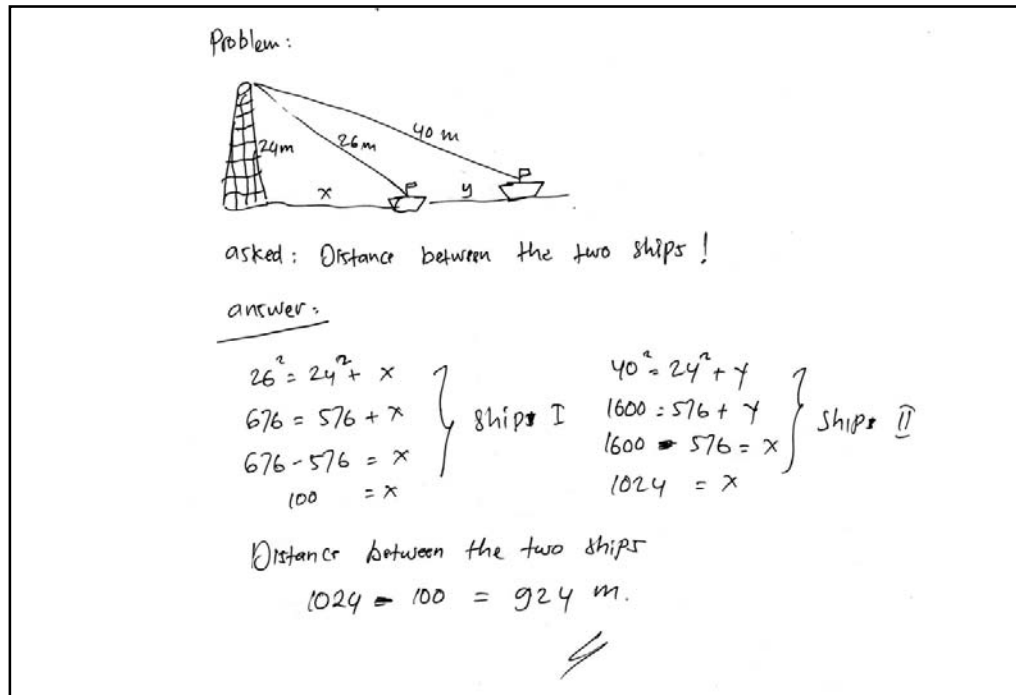 Problem:
24m
26 m
40 m
x
y
asked: Distance between the two ships!
answer:
26² = 24² + x
676 = 576 + x
676 - 576 = x
100 = x
ships I
40² = 24² + y
1600 = 576 + y
1600 - 576 = x
1024 = x
ships II
Distance between the two ships
1024 - 100 = 924 m.